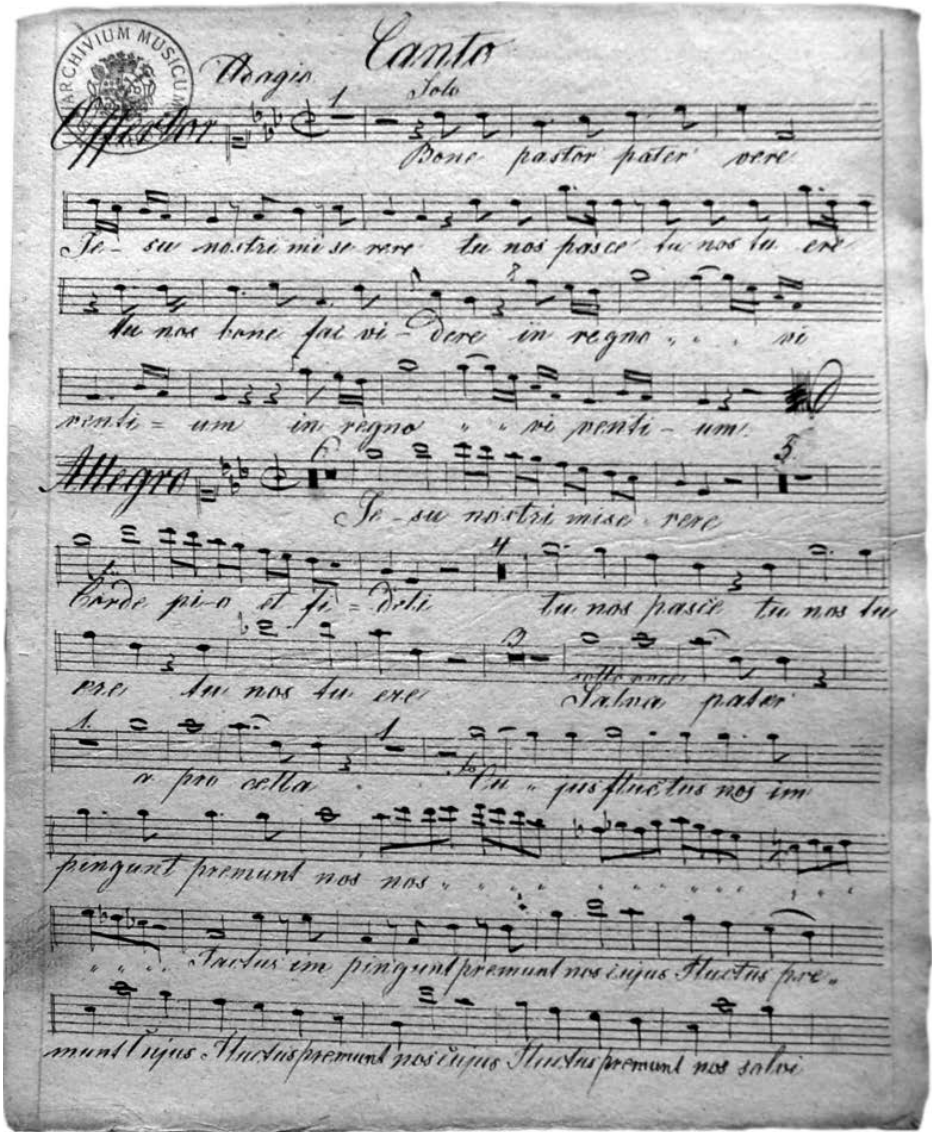 ARCHIVIUM MUSICUM
Canto
Adagio
1 Solo
Offertor.
Bone pastor pater vere
Je - su nostri mi se rere tu nos pasce tu nos tu ere
8
tu nos bone fac vi - dere in regno " . . vi
venti = um in regno " " vi venti - um.
Allegro 6 5.
Je - su nostri mise rere
4
Corde pi-o et fi = deli tu nos pasce tu nos tu
3
ere tu nos tu ere sotto voce Salva pater
1. 1
a pro cella Cu " jus fluctus nos im
pingunt premunt nos nos " " " "
" " " " Fluctus im pingunt premunt nos cujus Fluctus pre "
munt Cujus Fluctus premunt nos cujus Fluctus premunt nos salvi